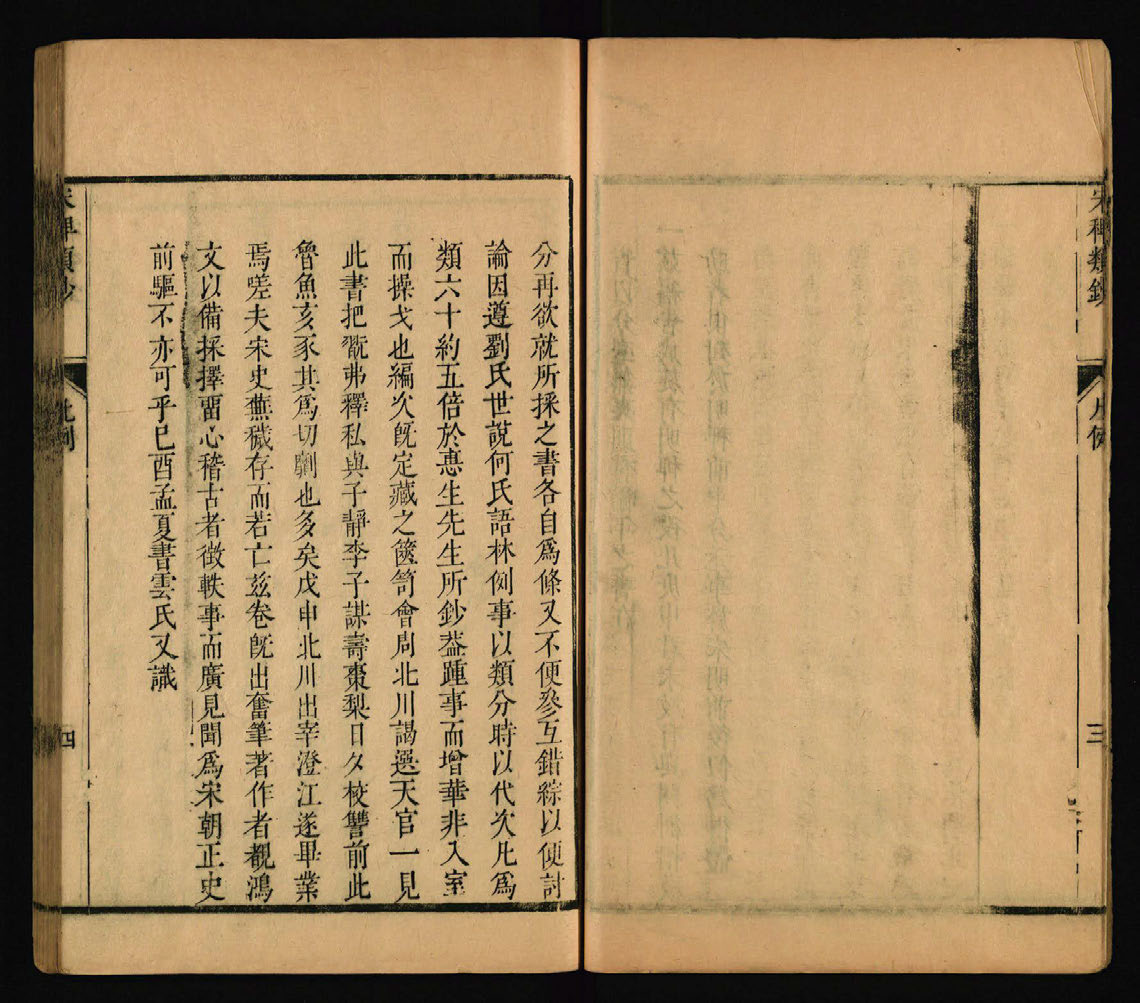 宋稗類鈔
凡例
三
分再欲就所採之書各自爲條又不便參互錯綜以便討
論因遵劉氏世說何氏語林例事以類分時以代次凡爲
類六十約五倍於惪生先生所鈔葢踵事而增華非入室
而操戈也編次旣定藏之篋笥會周北川謁選天官一見
此書把翫弗釋私與子靜李子謀壽棗梨日夕校讐前此
魯魚亥豕其爲切劘也多矣戊申北川出宰澄江遂畢業
焉嗟夫宋史蕪穢存而若亡兹卷旣出奮筆著作者覩鴻
文以備採擇畱心稽古者徵軼事而廣見聞爲宋朝正史
前驅不亦可乎己酉孟夏書雲氏又識
宋稗類鈔
凡例
四